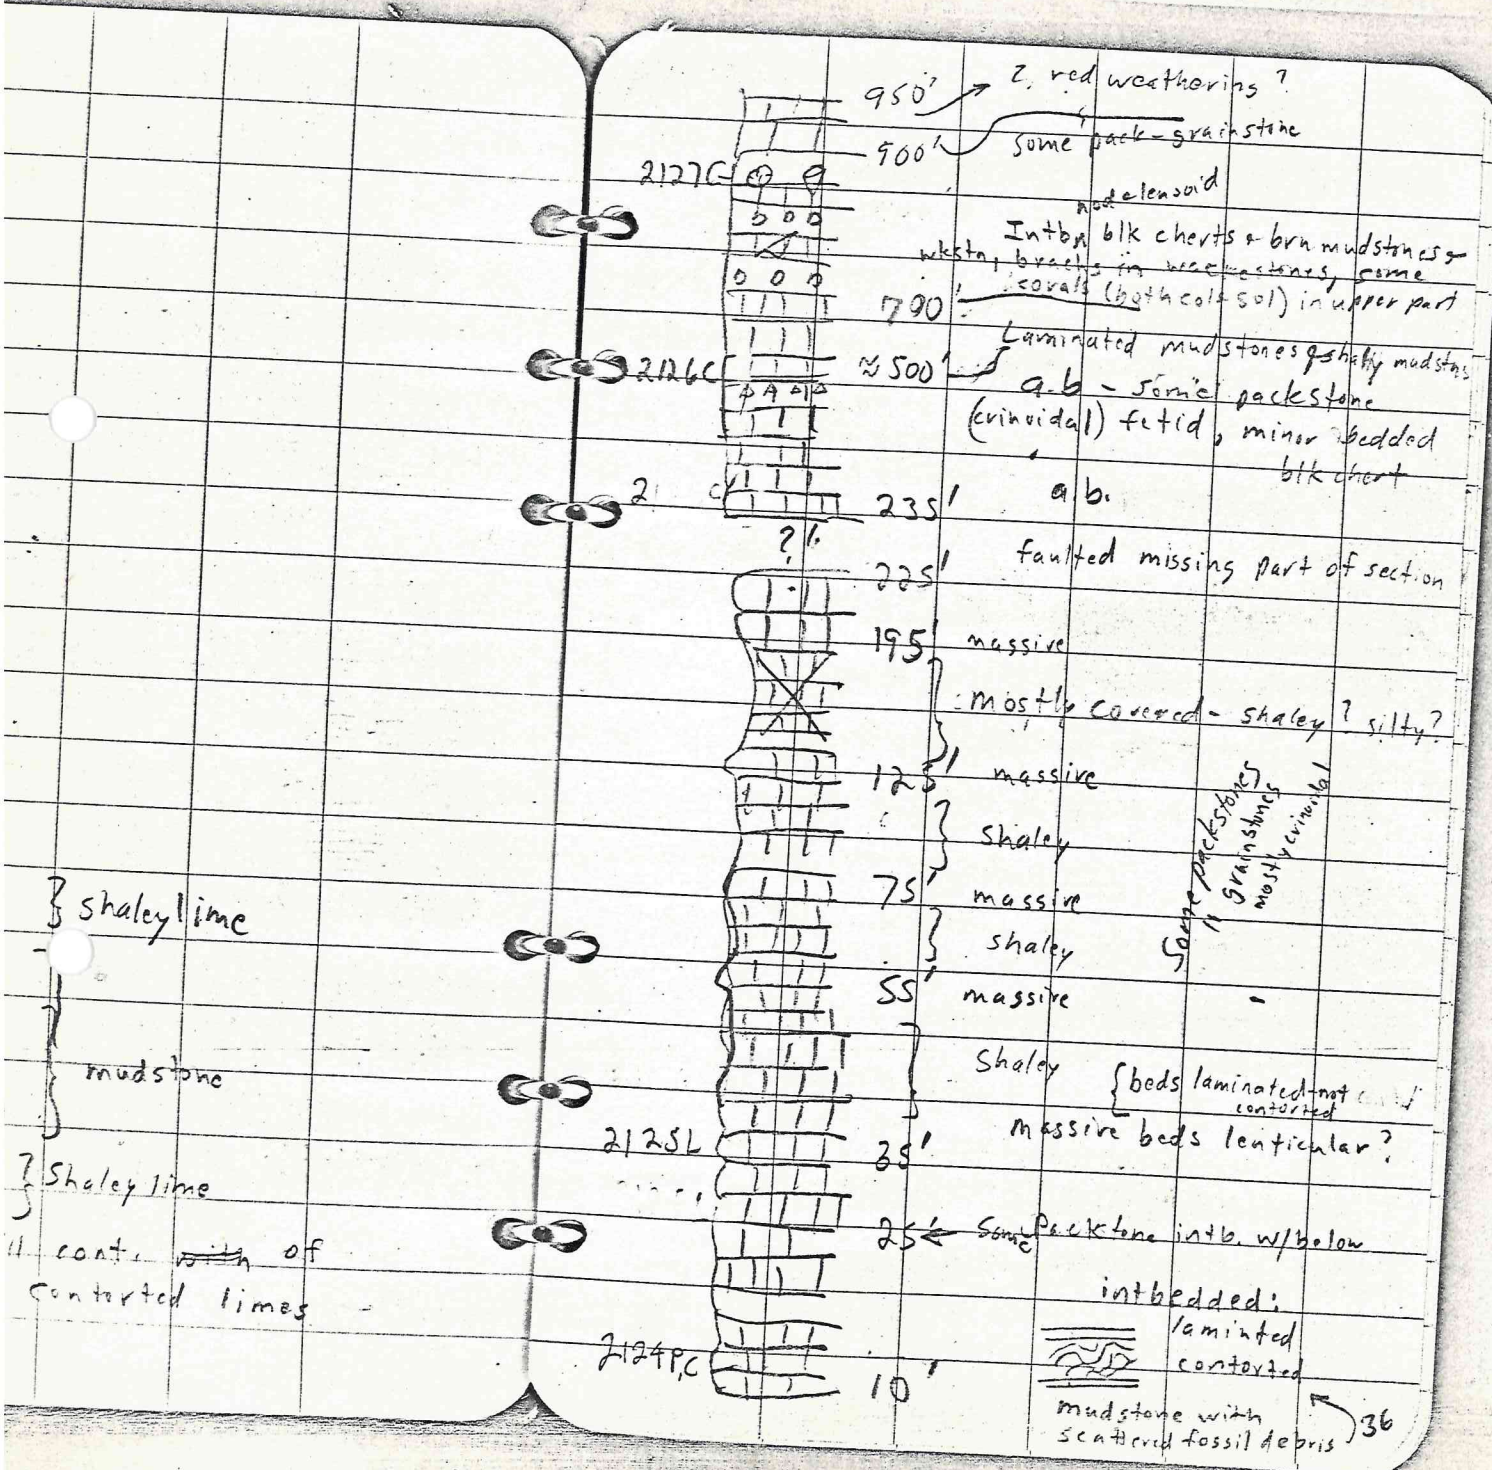 shaley lime
mudstone
Shaley lime
cont. with of
contorted limes
950' 2. red weathering ?
900' some pack-grainstone
2127C
nod lensoid
Intbd blk cherts & brn mudstones &
wkstn, brachs in wackestones, some
corals (both col & sol) in upper part
790'
Laminated mudstones & shaly mudstns
2126C ≈500'
a.b - some packstone
(crinoidal) fetid, minor bedded
blk chert
235' a.b.
? faulted missing part of section
225'
195' massive
mostly covered - shaley? silty?
125' massive
shaley
Some packstones
" grainstones
mostly crinoidal
75' massive
shaley
55' massive
Shaley { beds laminated-not
contorted
2125L 35' massive beds lenticular?
25' ← Some Packtone intb. w/below
intbedded:
laminted
contorted
2124P,C 10'
mudstone with
scattered fossil debris
36